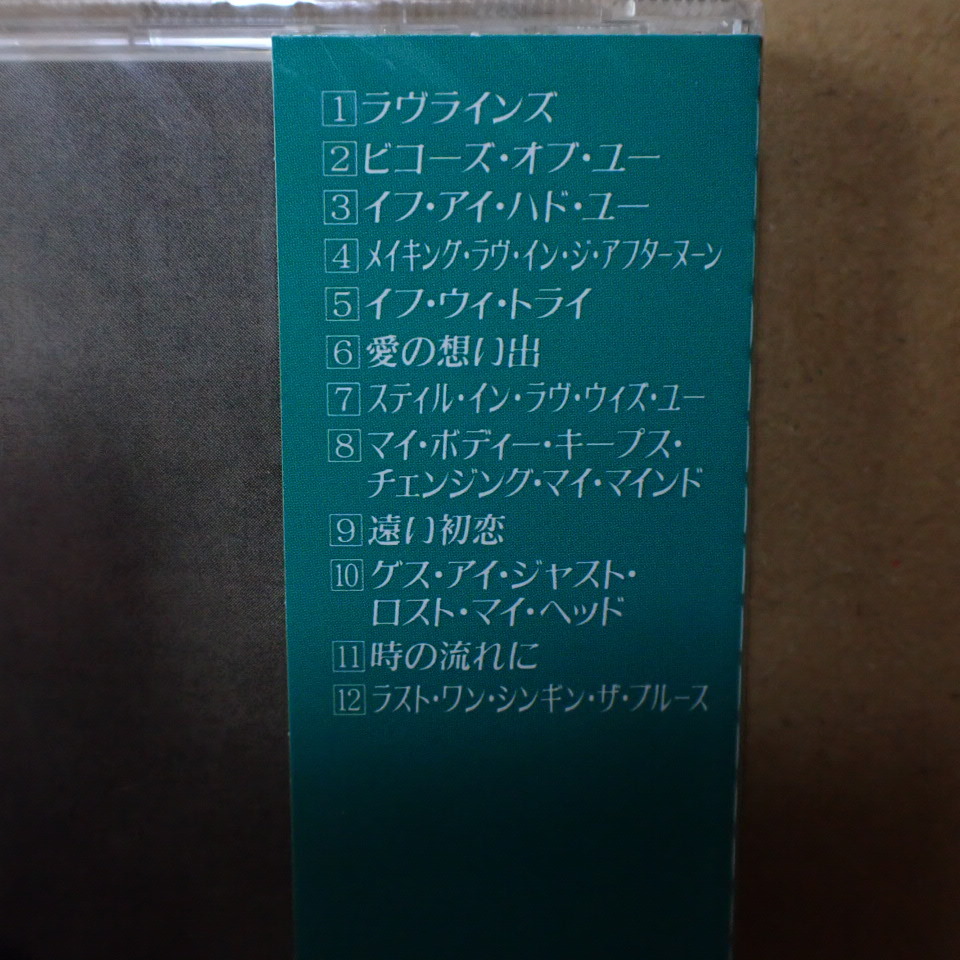 1 ラヴラインズ
2 ビコーズ・オブ・ユー
3 イフ・アイ・ハド・ユー
4 メイキング・ラヴ・イン・ジ・アフターヌーン
5 イフ・ウィ・トライ
6 愛の想い出
7 スティル・イン・ラヴ・ウィズ・ユー
8 マイ・ボディー・キープス・
チェンジング・マイ・マインド
9 遠い初恋
10 ゲス・アイ・ジャスト・
ロスト・マイ・ヘッド
11 時の流れに
12 ラスト・ワン・シンギン・ザ・ブルース